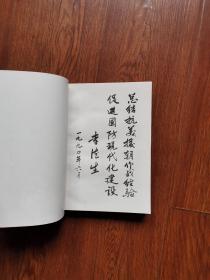 总结抗美援朝作战经验
促进国防现代化建设
李德生
一九九〇年六月